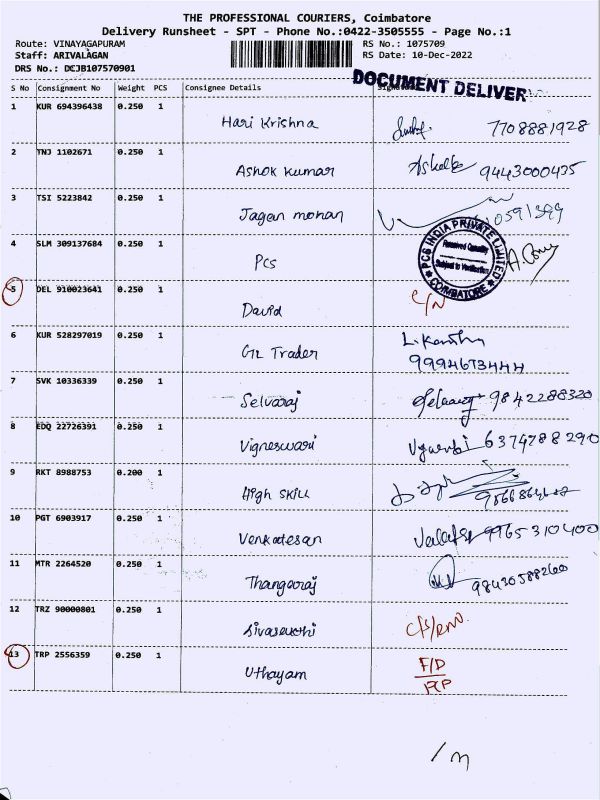 THE PROFESSIONAL COURIERS, Coimbatore
Delivery Runsheet - SPT - Phone No.:0422-3505555 - Page No.:1
Route: VINAYAGAPURAM
RS No.: 1075709
Staff: ARIVALAGAN
RS Date: 10-Dec-2022
DRS No.: DCJB107570901
DOCUMENT DELIVER
S No Consignment No Weight PCS Consignee Details
1 KUR 694396438 0.250 1
Hari Krishna 7708881928
2 TNJ 1102671 0.250 1
Ashok Kumar 9443000435
3 TSI 5223842 0.250 1
Jagan mohan
4 SLM 309137684 0.250 1
PCS
PCS INDIA PRIVATE LIMITED
Received Quantity
Subject to Verification
COIMBATORE
5 DEL 910023641 0.250 1
David C/N
6 KUR 528297019 0.250 1
GTL Trader
9994673444
7 SVK 10336339 0.250 1
Selvaraj 9842288320
8 EDQ 22726391 0.250 1
Vigneswari 6374788290
9 RKT 8988753 0.200 1
High SKILL
10 PGT 6903917 0.250 1
Venkatesan 9965310400
11 MTR 2264520 0.250 1
Thangaraj
12 TRZ 90000801 0.250 1
13 TRP 2556359 0.250 1
Uthayam F/D